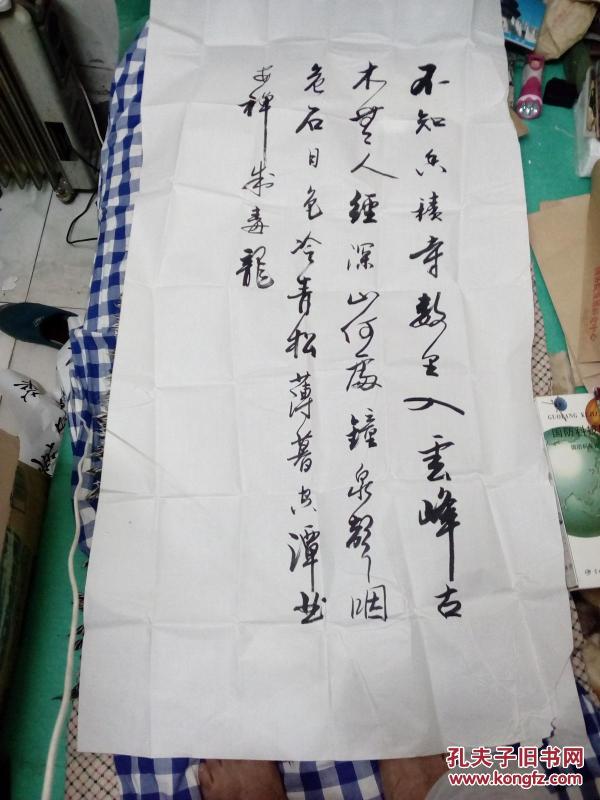 不知香積寺數里入雲峰古
木無人經深山何處鐘泉聲咽
危石日色冷青松薄暮空潭曲
安禪制毒龍
国防科
孔夫子旧书网
www.kongfz.com